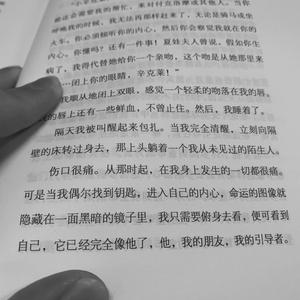 你还会需要我的帮忙，来对付克洛摩或其他人。当你
呼唤我的时候，我无法再那样赶来了，无论是骑马或坐
火车。你必须倾听你的内心，然后你会察觉我就在你的
内心。你懂吗？还有一件事！夏娃夫人曾说，假如你生
病了，我得代替她给你一个亲吻，这个吻是从她那里来
……闭上你的眼睛，辛克莱！”
我顺从地闭上双眼，感觉一个轻柔的吻落在我的唇。
唇上还有一些鲜血，不曾止住。然后，我睡着了。
隔天我被叫醒起来包扎。当我完全清醒，立刻向隔
壁的床转过身去，那上头躺着一个我从未见过的陌生人。
伤口很痛。从那时起，在我身上发生的一切都很痛。
可是当我偶尔找到钥匙，进入自己的内心，命运的图像就
隐藏在一面黑暗的镜子里，我只需要俯身去看，便可看到
自己，它已经完全像他了，他，我的朋友，我的引导者。